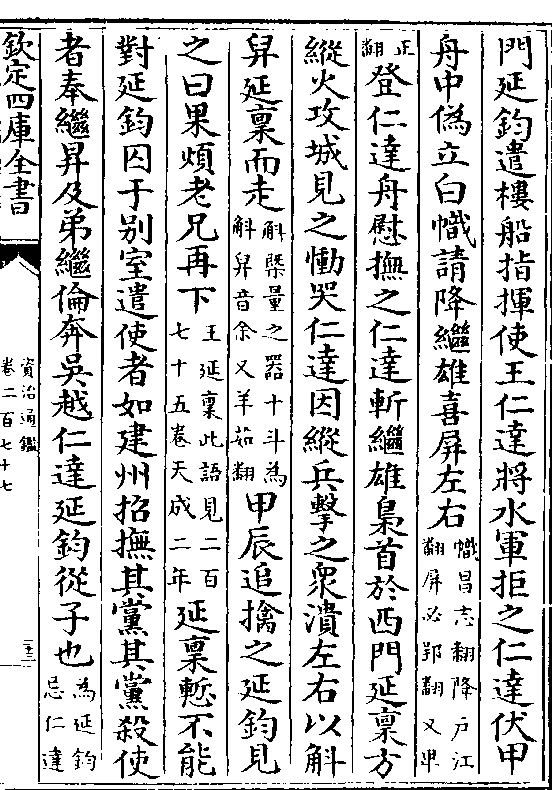 門延鈞遣樓船指揮使王仁達將水軍拒之仁達伏甲
舟中偽立白幟請降繼雄喜屏左右幟昌志翻降戶江
翻屏必郢翻又卑
正翻登仁達舟慰撫之仁達斬繼雄梟首於西門延稟方
縱火攻城見之慟哭仁達因縱兵擊之衆潰左右以斛
舁延稟而走斛槩量之器十斗為
斛舁音余又羊茹翻
甲辰追擒之延鈞見
之曰果煩老兄再下王延稟此語見二百
七十五卷天成二年
延稟慙不能
對延鈞囚于別室遣使者如建州招撫其黨其黨殺使
者奉繼昇及弟繼倫奔吳越仁達延鈞從子也為延鈞
忌仁達
欽定四庫全書
資治通鑑
卷二百七十七